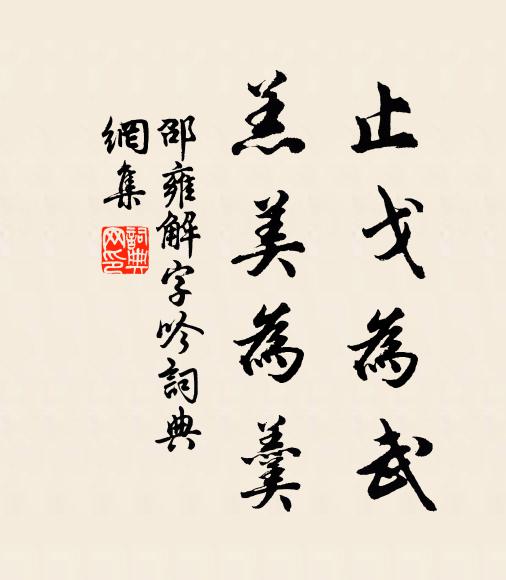 止戈為武
羔美為羹
邵雍解字吟詞典
網集
詞典
网印